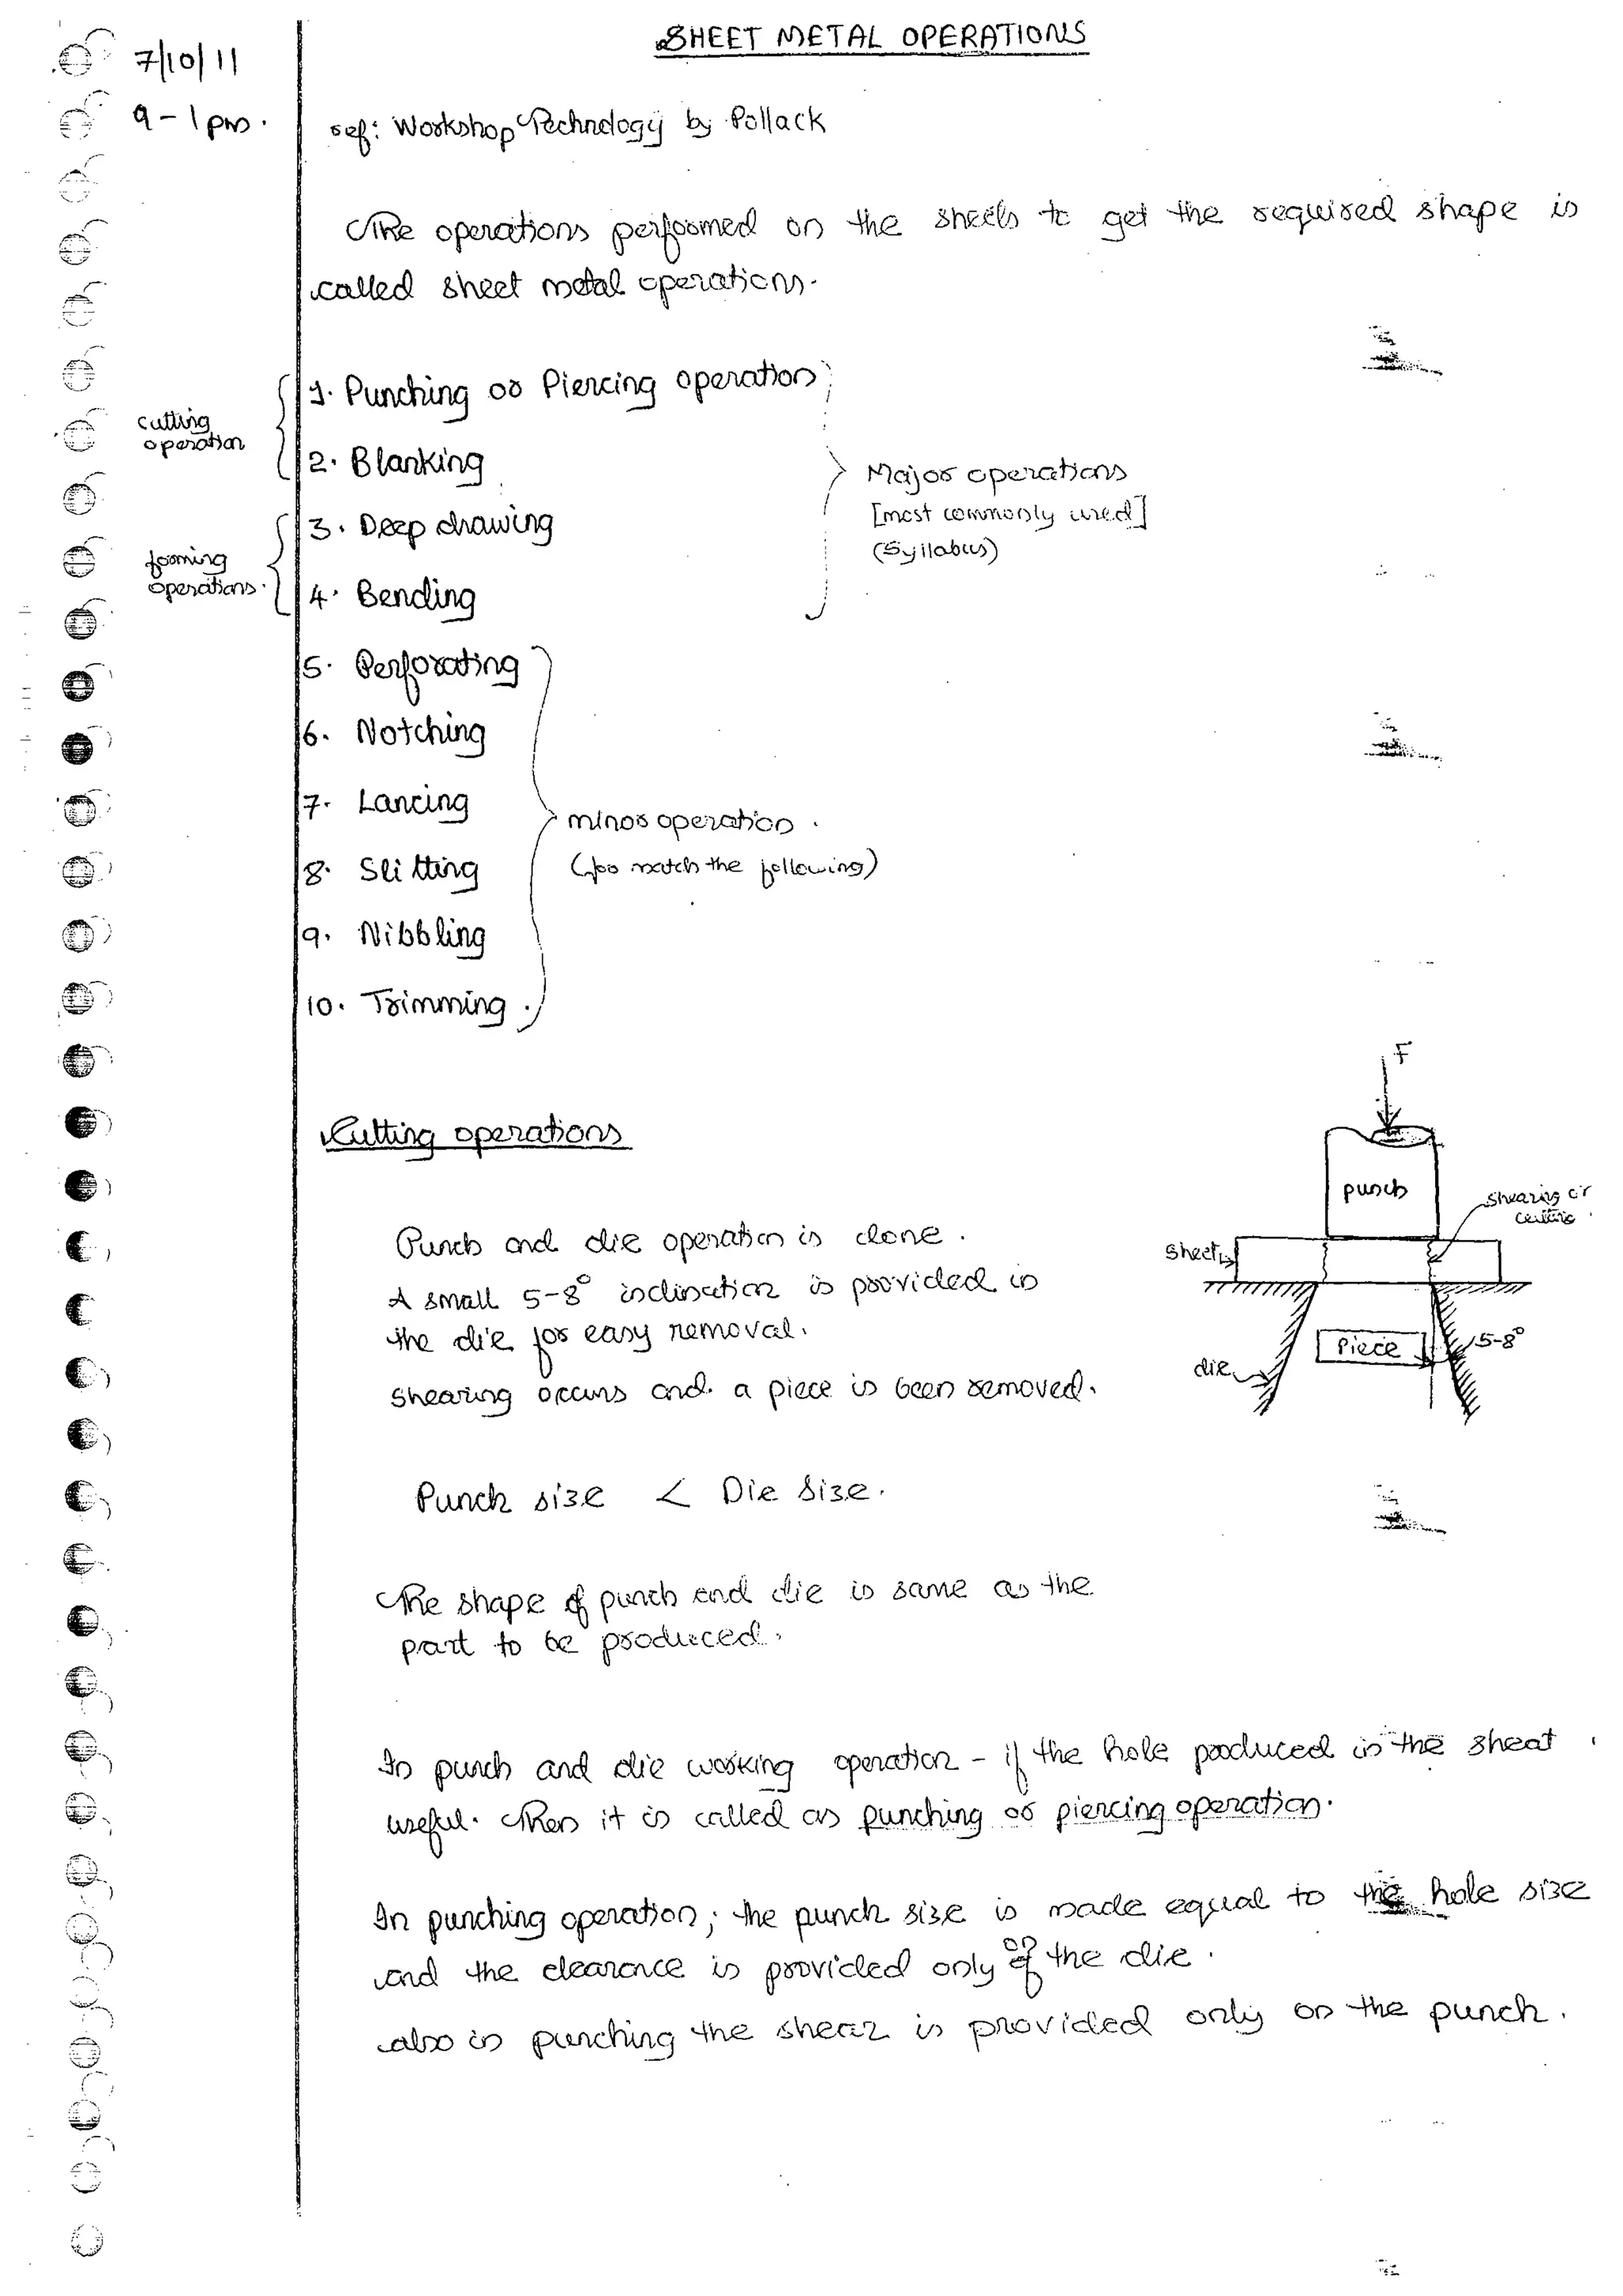 SHEET METAL OPERATIONS
7/10/11
9-1pm.
ref: Workshop Technology by Pollack
The operations performed on the sheets to get the required shape is
called sheet metal operations.
cutting
operation
1. Punching or Piercing operation
2. Blanking
Major operations
[most commonly used]
(Syllabus)
forming
operations.
3. Deep drawing
4. Bending
5. Perforating
6. Notching
7. Lancing
minor operation.
(for match the following)
8. Slitting
9. Nibbling
10. Trimming.
Cutting operations
Punch and die operation is done.
A small 5-8° inclination is provided in
the die for easy removal.
Shearing occurs and a piece is been removed.
F
punch
shearing or
cutting
sheet
Piece
5-8°
die
Punch size < Die Size.
The shape of punch and die is same as the
part to be produced.
In punch and die working operation - if the hole produced in the sheet
useful. Then it is called as punching or piercing operation.
In punching operation; the punch size is made equal to the hole size
and the clearance is provided only on the die.
also in punching the shear is provided only on the punch.